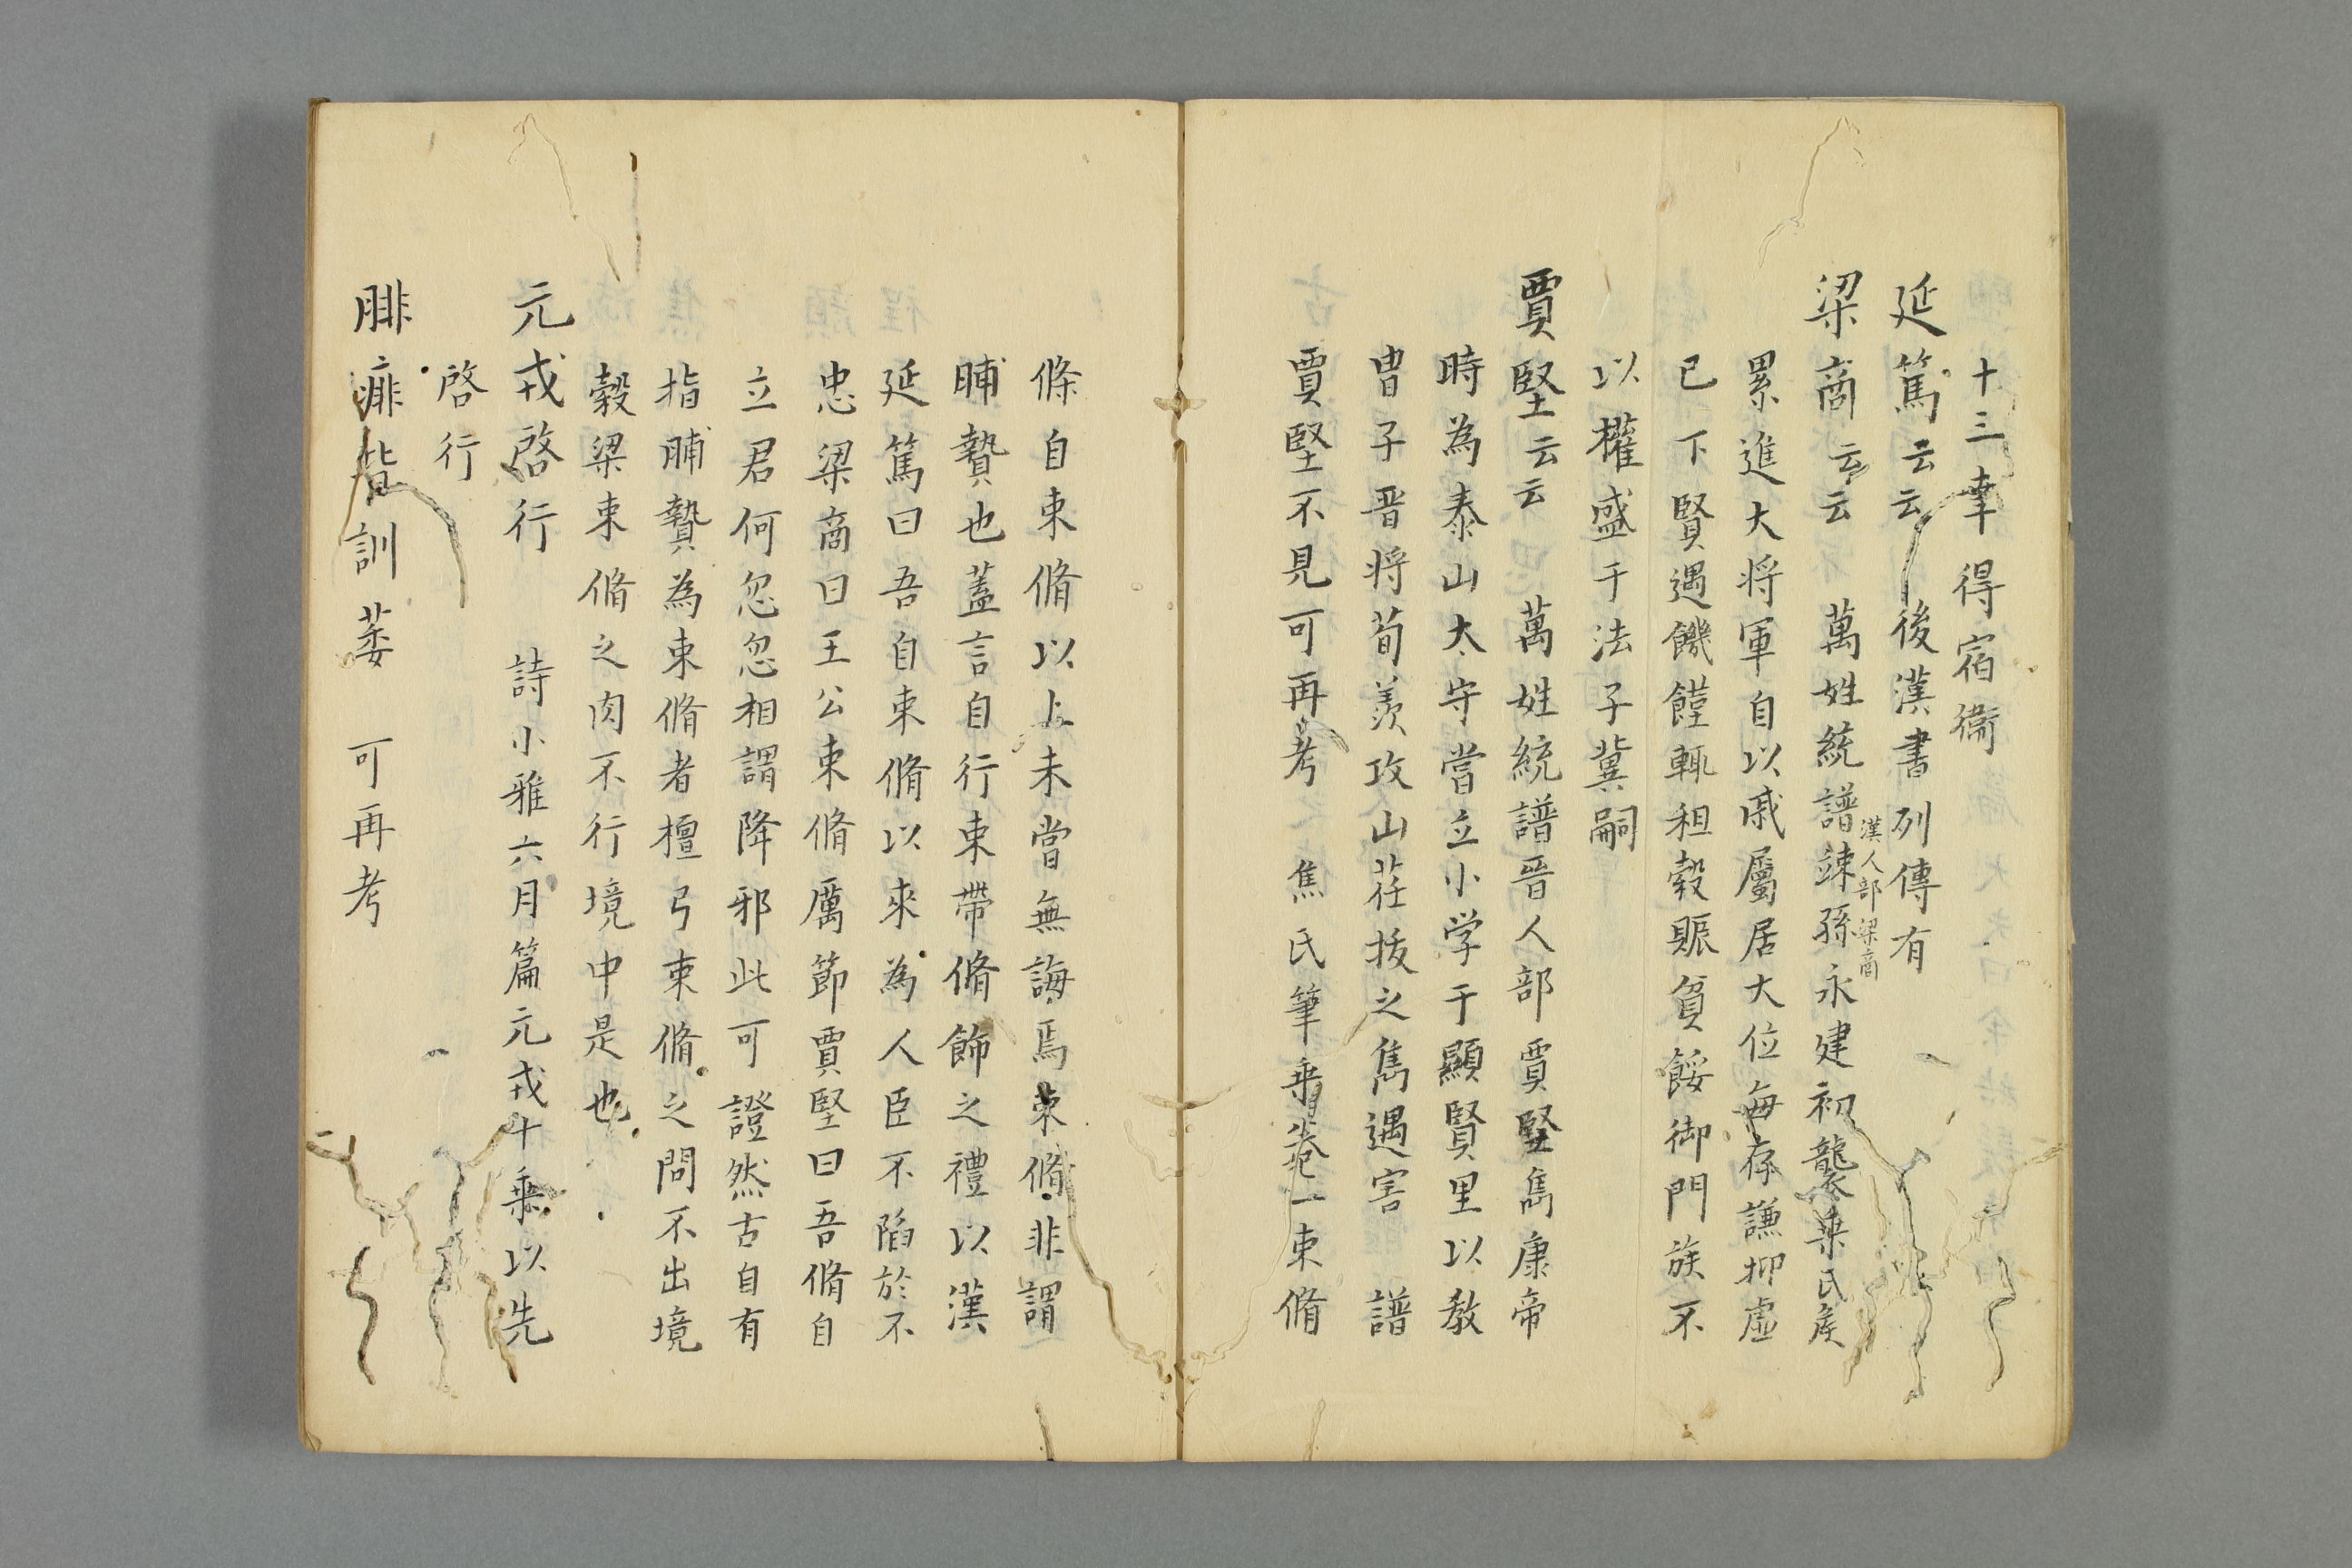 十三幸得宿衞
延篤云云　後漢書列傳有
梁商云云　萬姓統譜漢人部梁商竦孫永建初襲乗氏矦
累進大将軍自以戚屬居大位毎存謙抑虛
已下賢遇饑饉輙租穀賑貧餒御門族不
以權盛干法子冀嗣
賈堅云云　萬姓統譜晋人部賈堅雋康帝
時為泰山太守嘗立小学于顯賢里以教
曺子晋将荀羨攻山茌拔之雋遇害　譜
賈堅不見可再考　焦氏筆乗卷一束脩
條自束脩以上未嘗無誨焉束脩非謂
脯贄也蓋言自行束帶脩飾之禮以漢
延篤曰吾自束脩以來為人臣不陷於不
忠梁商曰王公束脩厲節賈堅曰吾脩自
立君何忽忽相謂降邪此可證然古自有
指脯贄為束脩者檀弓束脩之問不出境
穀梁束脩之肉不行境中是也
元戎啓行　詩小雅六月篇元戎十乗以先
啓行
腓痱皆訓萎　可再考